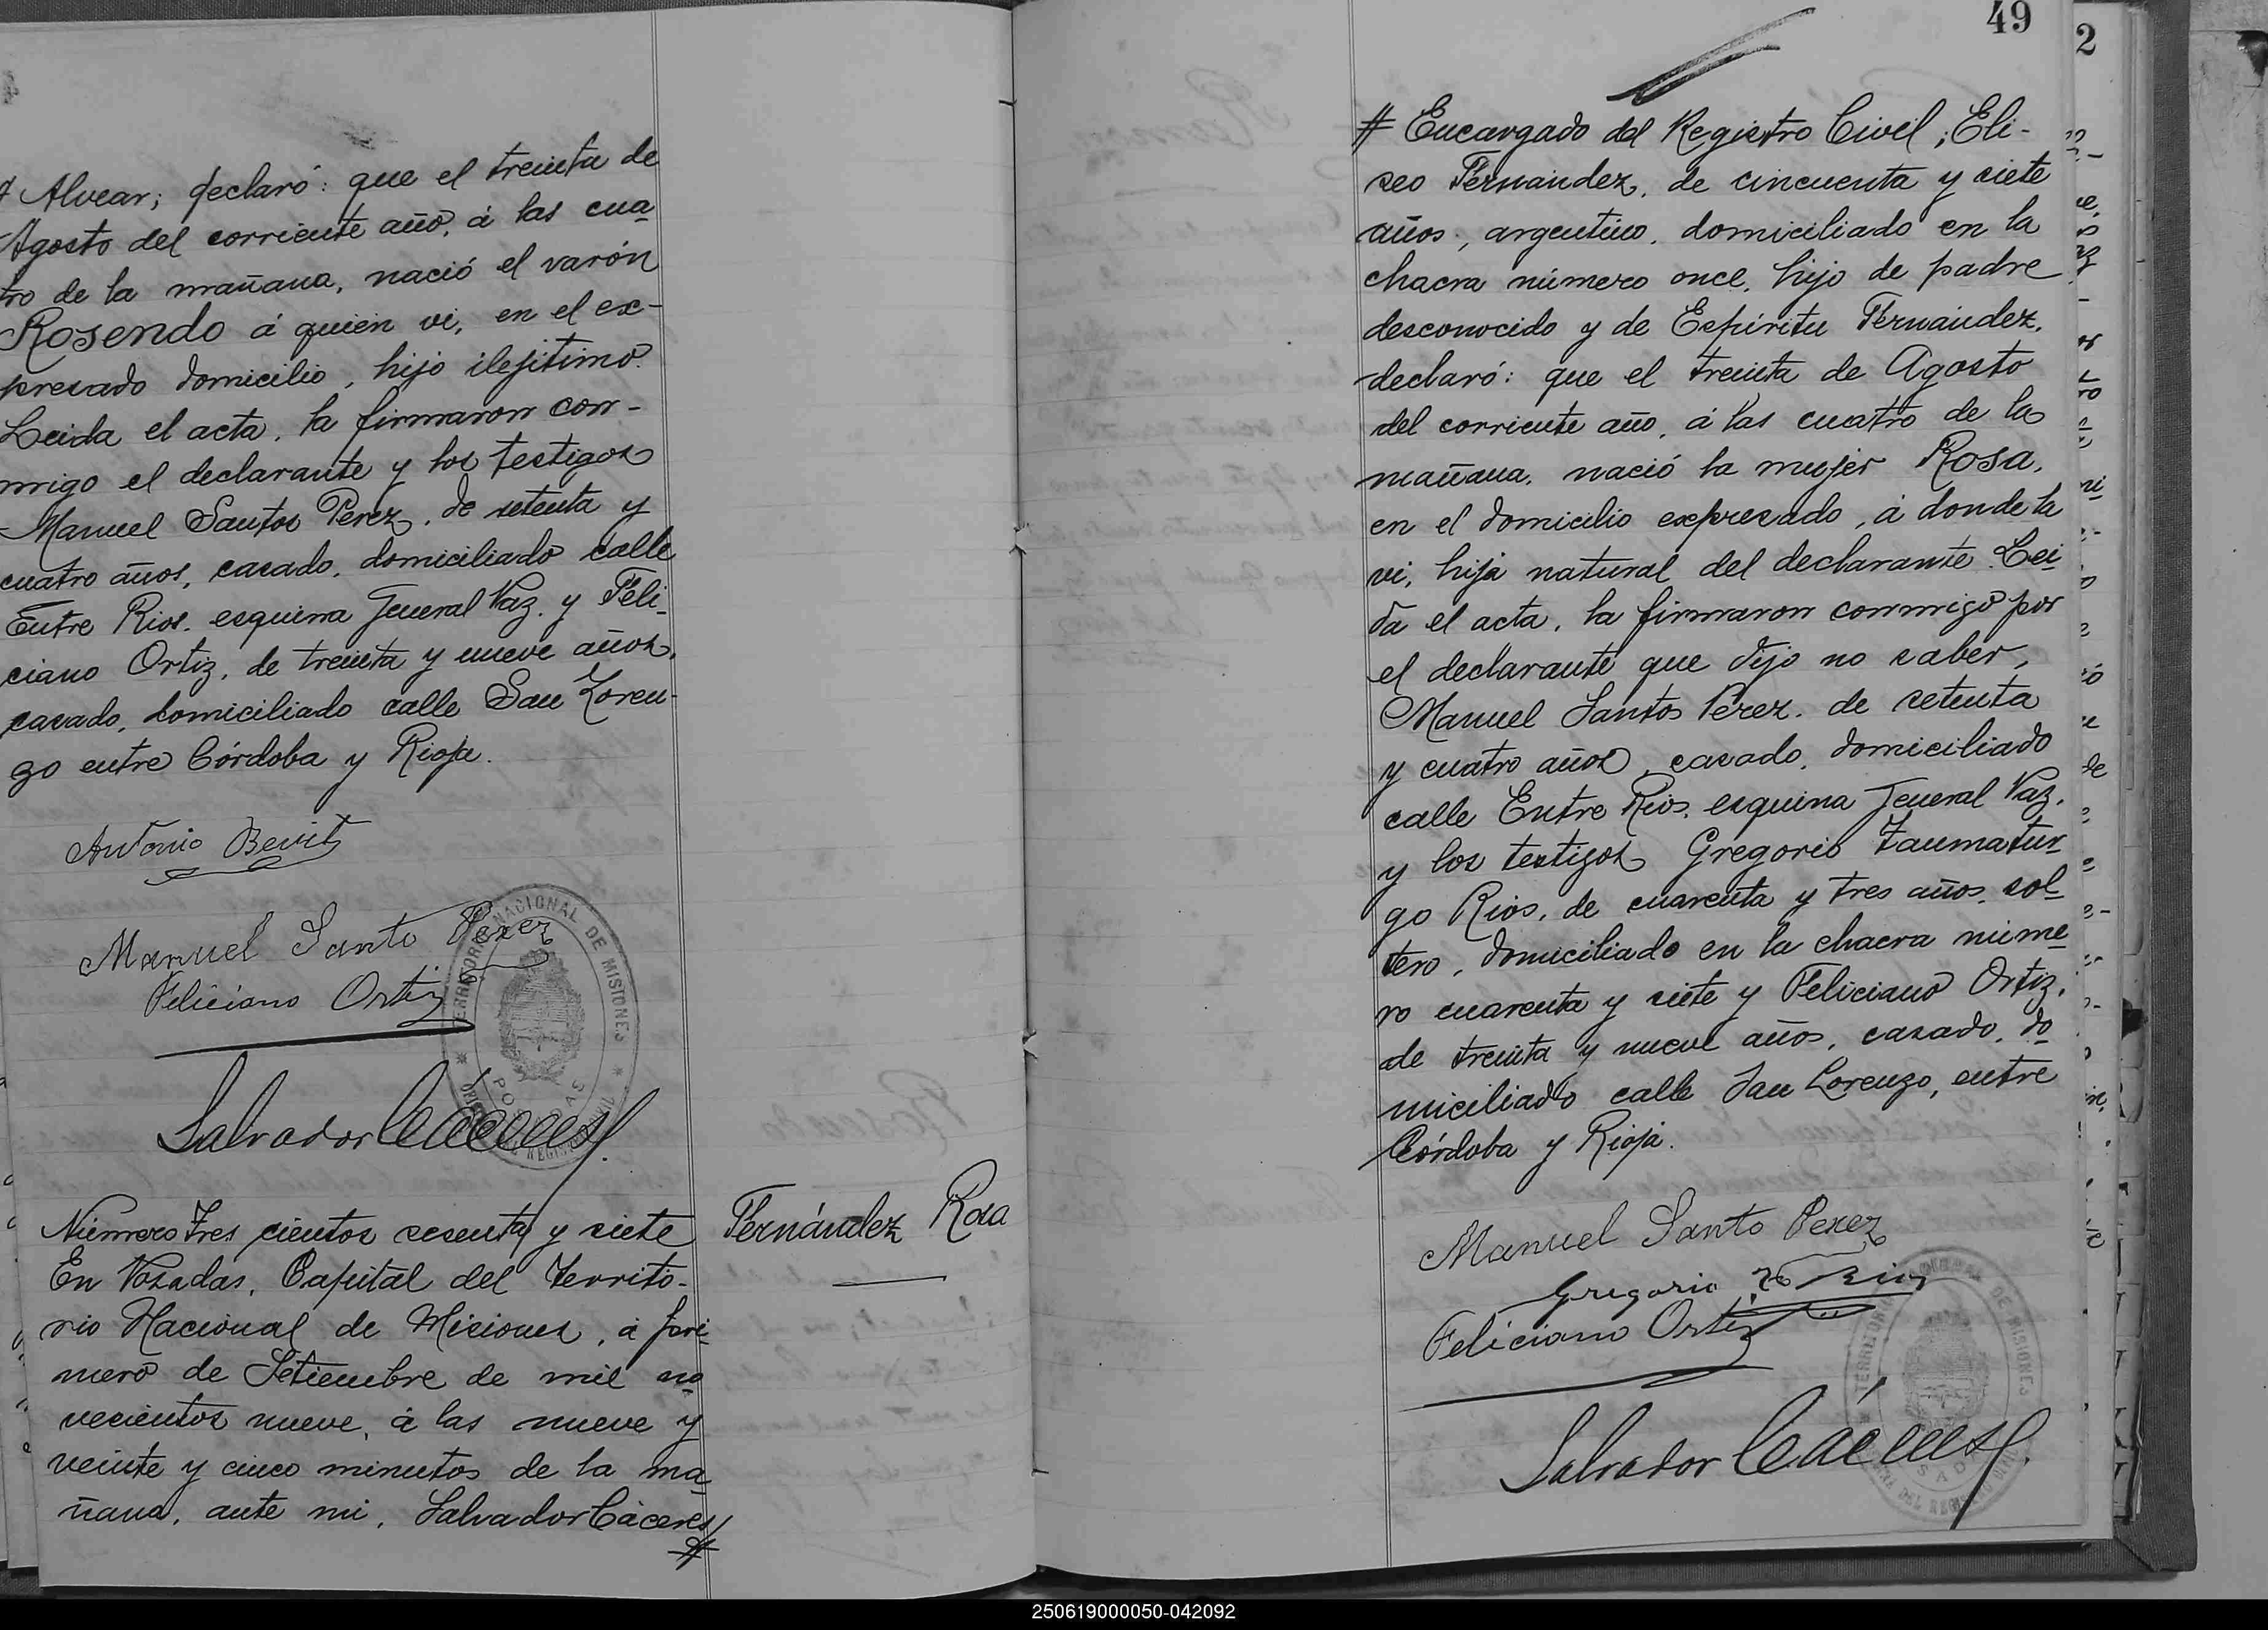 # Alvear; declaró: que el treinta de
Agosto del corriente año, á las cua
tro de la mañana, nació el varón
Rosendo á quien vi, en el ex-
presado domicilio, hijo ilejitimo.
Leida el acta, la firmaron con-
migo el declarante y los testigos
Manuel Santos Perez, de setenta y
cuatro años, casado, domiciliado calle
Entre Rios, esquina General Paz, y Feli-
ciano Ortiz, de treinta y nueve años,
casado, domiciliado calle San Loren-
zo entre Córdoba y Rioja.
Antonio
Manuel Santo Perez
Feliciano Ortiz
TERRITORIO NACIONAL DE MISIONES
POSADAS
Salvador Cáceres
Número Tres cientos sesenta y siete
En Posadas, Capital del Territo-
rio Nacional de Misiones, á pri-
mero de Setiembre de mil no
vecientos nueve, á las nueve y
veinte y cinco minutos de la ma
ñana, ante mi, Salvador Cáceres
#
Fernández Rosa
49
2
# Encargado del Registro Civil, Eli-
seo Fernández, de cincuenta y siete
años, argentino, domiciliado en la
chacra número once, hijo de padre
desconocido y de Espíritu Fernández,
declaró: que el treinta de Agosto
del corriente año, á las cuatro de la
mañana, nació la mujer Rosa,
en el domicilio expresado, á donde la
vi, hija natural del declarante. Lei-
da el acta, la firmaron conmigo por
el declarante que dijo no saber,
Manuel Santos Perez, de setenta
y cuatro años, casado, domiciliado
calle Entre Rios, esquina General Paz,
y los testigos Gregorio Taumatur
go Rios, de cuarenta y tres años, sol
tero, domiciliado en la chacra núme
ro cuarenta y siete y Feliciano Ortiz,
de treinta y nueve años, casado, do
miciliado calle San Lorenzo, entre
Córdoba y Rioja.
Manuel Santo Perez
Gregorio Rios
Feliciano Ortiz
Salvador Cáceres
250619000050-042092